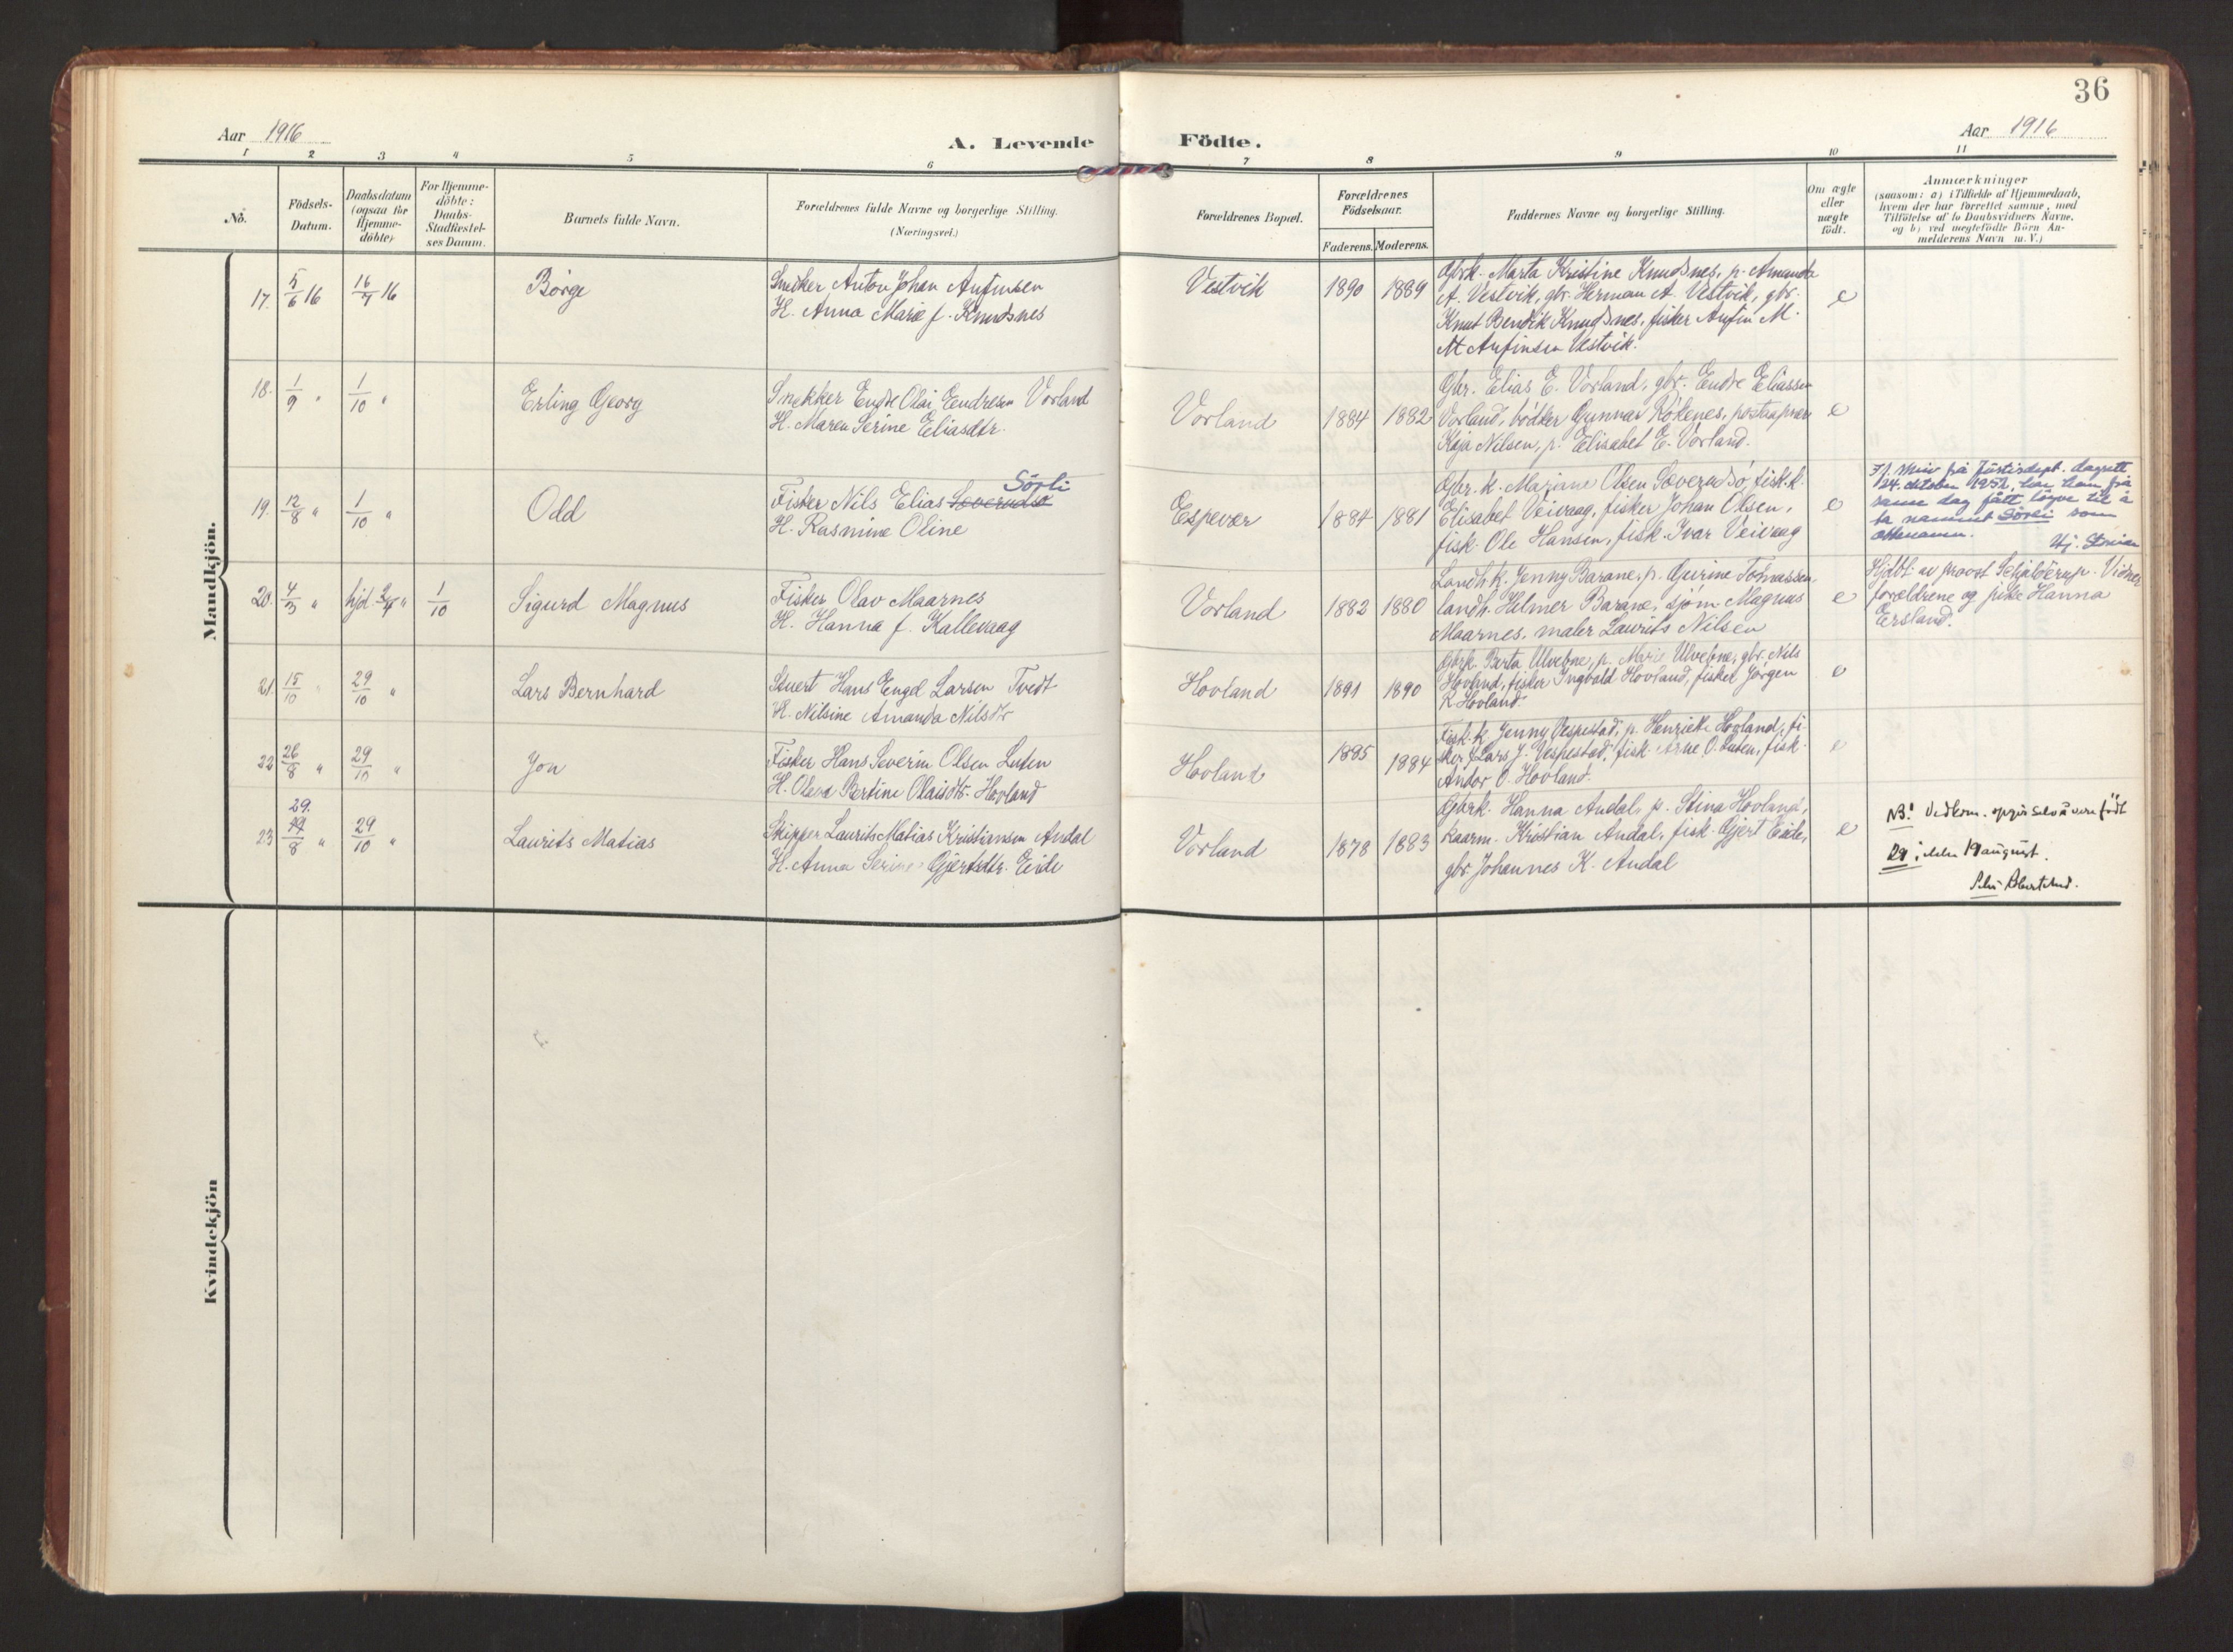 36
Aar 1916
A. Levende Födte.
Aar 1916
1 2 3 4 5 6 7 8 9 10 11
No.
Födsels-
Datum.
Daabsdatum
(ogsaa for
Hjemme-
döbte)
For Hjemme-
döbte:
Daabs-
Stadfæstel-
ses Datum.
Barnets fulde Navn.
Forældrenes fulde Navne og borgerlige Stilling.
(Næringsvei.)
Forældrenes Bopæl.
Forældrenes
Födselsaar.
Faderens. Moderens.
Faddernes Navne og borgerlige Stilling.
Om ægte
eller
uægte
födt.
Anmærkninger
(saasom: a) i Tilfælde af Hjemmedaab,
hvem der har forrettet samme, med
Tilföielse af to Daabsvidners Navne,
og b) ved uægtefödte Börn An-
melderens Navn m. V.)
Mandkjön.
17. 5/6 16 16/7 16 Börge
Snekker Anton Johan Anfinsen
H. Anna Marie f. Knudsnes
Vestvik 1890 1889
Gbrk. Marta Kristine Knudsnes, p. Amanda
A. Vestvik, gbr. Herman A. Vestvik, gbr.
Knut Bendik Knudsnes, fisker Anfin M.
M Anfinsen Vestvik.
e
18. 1/9 " 1/10 " Erling Georg
Snekker Endre Olai Eendresen Vorland
H. Maren Serine Eliasdtr.
Vorland 1884 1882
Gbr. Elias E. Vorland, gbr. Endre Eliassen
Vorland, bödker Gunnar Rökenes, postaapner
Kaja Nilsen, p. Elisabet E. Vorland.
e
19. 12/8 " 1/10 " Odd
Sörli
Fisker Nils Elias Soverudsö
H. Rasmine Oline
Espevær 1884 1881
Gbr. k. Mariane Olsen Soverudsö, fisk.k.
Elisabet Veivaag, fisker Johan Olsen,
fisk. Ole Hansen, fisk. Ivar Veivaag
e
Fl. skriv frå Justisdept. dagsett
24. oktober 1952, har han frå
same dag fått löyve til å
ta namnet Sörli som
ettenamn.
20. 4/3 " hjd. 2/4 " 1/10 Sigurd Magnus
Fisker Olav Maarnes
H. Hanna f. Kallevaag
Vorland 1882 1880
Landh.k. Jenny Barane, p. Gurine Tomassen,
landh. Helmer Barane, sjöm. Magnus
Maarnes, maler Laurits Nilsen
e
Hjdbt. av provst Schjelderup. Vidner
forældrene og pike Hanna
Ersland.
21. 15/10 29/10 " Lars Bernhard
Stuert Hans Engel Larsen Tvedt
H. Nilsine Amanda Nilsdtr
Hovland 1891 1890
Gbrk. Berta Ulveöne, p. Marie Ulveöne, gbr. Nils
Hovland, fisker Ingvald Hovland, fisker Jörgen
R Hovland.
e
22 26/8 " 29/10 " Jon
Fisker Hans Severin Olsen Luten
H. Olena Bertine Olaisdtr. Hovland
Hovland 1885 1884
Fisk.k. Jenny Vespestad, p. Henrikke Hovland, fi-
sker Lars J. Vespestad, fisk. Arne O. Luten, fisk.
Andor O. Hovland.
e
29.
23 19/8 " 29/10 " Laurits Matias
Skipper Laurits Matias Kristiansen Andal
H. Anna Serine Gjertsdtr. Eide
Vorland 1878 1883
Gbrk. Hanna Andal, p. Stina Hovland,
kaarm. Kristian Andal, fisk. Gjert Eide,
gbr. Johannes K. Andal
e
NB! Vedkom. oppgir selv å være født
29 ikke 19 august.
Kvindekjön